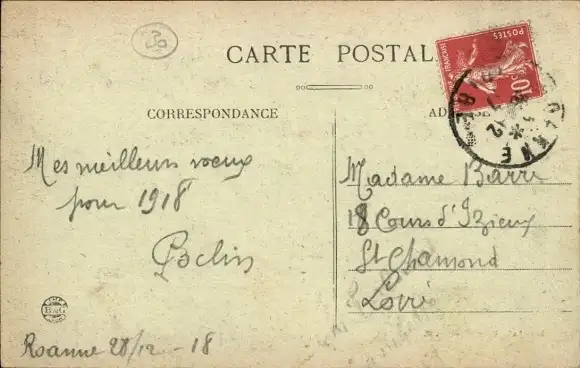 30
CARTE POSTALE
CORRESPONDANCE
ADRESSE
POSTES
10
Mes meilleurs voeux
pour 1918
Madame Barri
18 Cours d'Izieux
St Chamond
Loire
B&G
Roanne 28/12 - 18